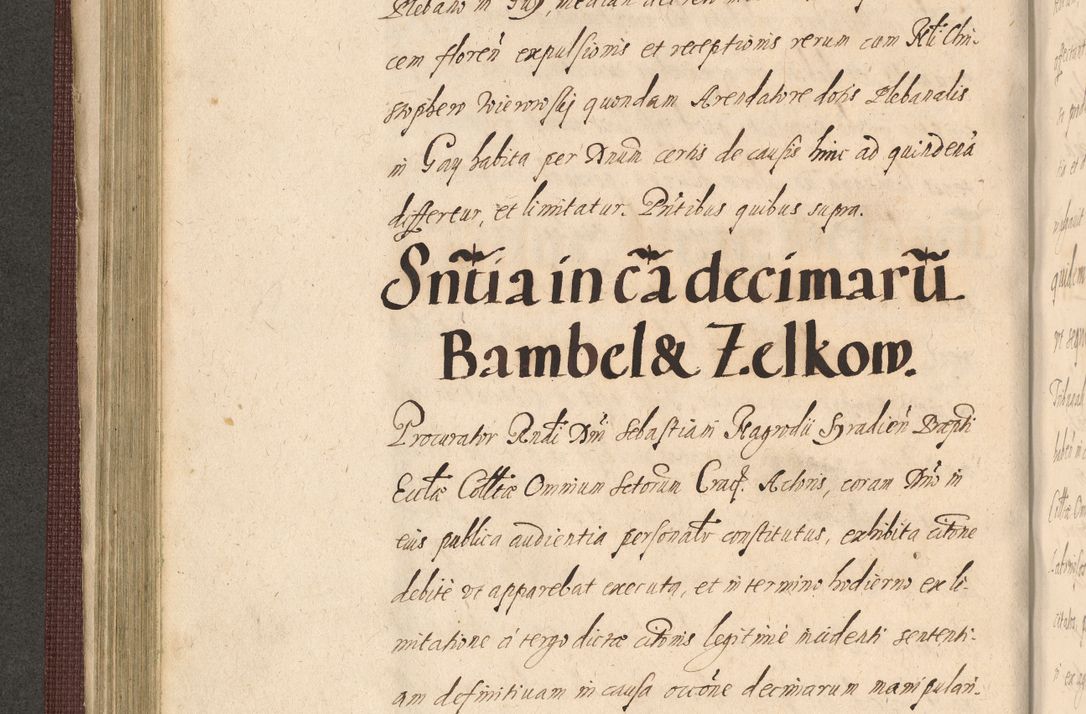 Plebano in Gay, median
cem floreñ expulsionis et receptionis rerum cum Ntli Chri-
stophero Wierowskj quondam Arendatore dotis Plebanalis
in Gay habita per Dnum certis de causis hinc ad quindenā
differtur, et limitatur. Pntibus quibus supra.
Snt̃ia in cã decimarũ
Bambel & Zelkow.
Procurator Rndi Dñi Sebastiani Nagrodii Syradień Præpti
Ecclæ Colltæ Omnium Sctorum Cracƺ. Actoris, coram Dño in
eius publica audientia personalr constitutus, exhibita citõne
debite ut apparebat executa, et in termino hodierno ex li-
mitatione á tergo dictæ citõnis legitime incidenti sententi-
am definitivam in causa occõne decimarum manipulari-